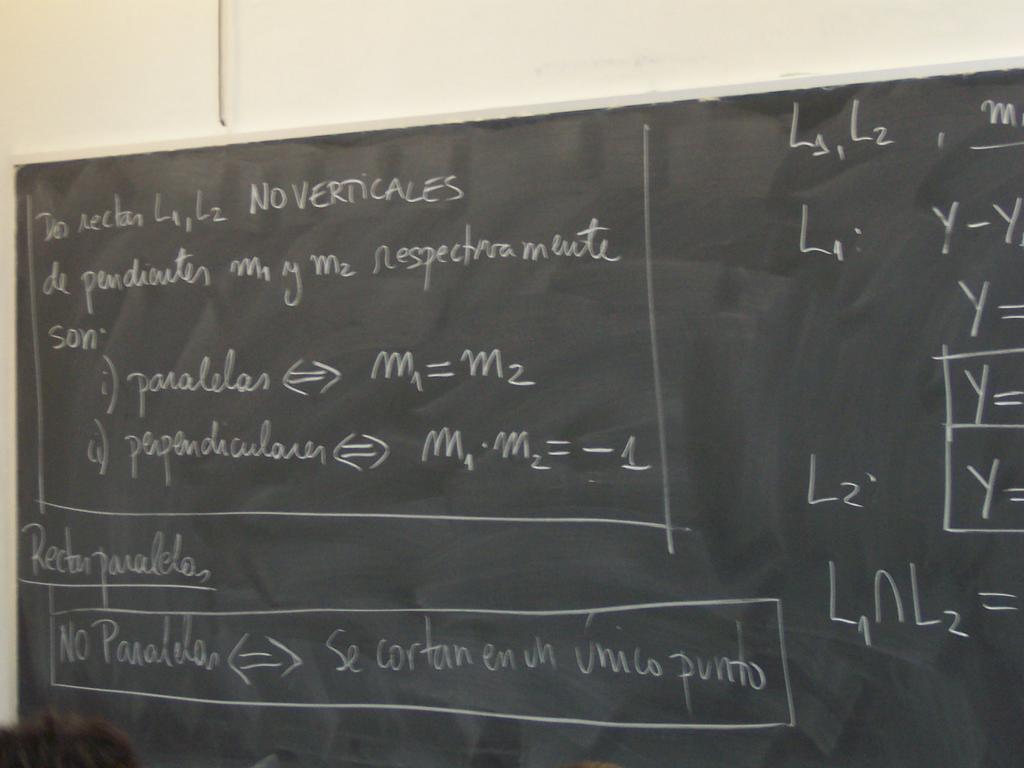 Dos rectas L1, L2 NO VERTICALES
de pendientes m1 y m2 respectivamente
son:
i) paralelas ⇔ m1 = m2
ii) perpendiculares ⇔ m1 · m2 = -1
Rectas paralelas
NO Paralelas ⇔ Se cortan en un único punto
L1, L2 , m1
L1: Y - Y1
Y =
Y =
L2: Y =
L1 ∩ L2 =